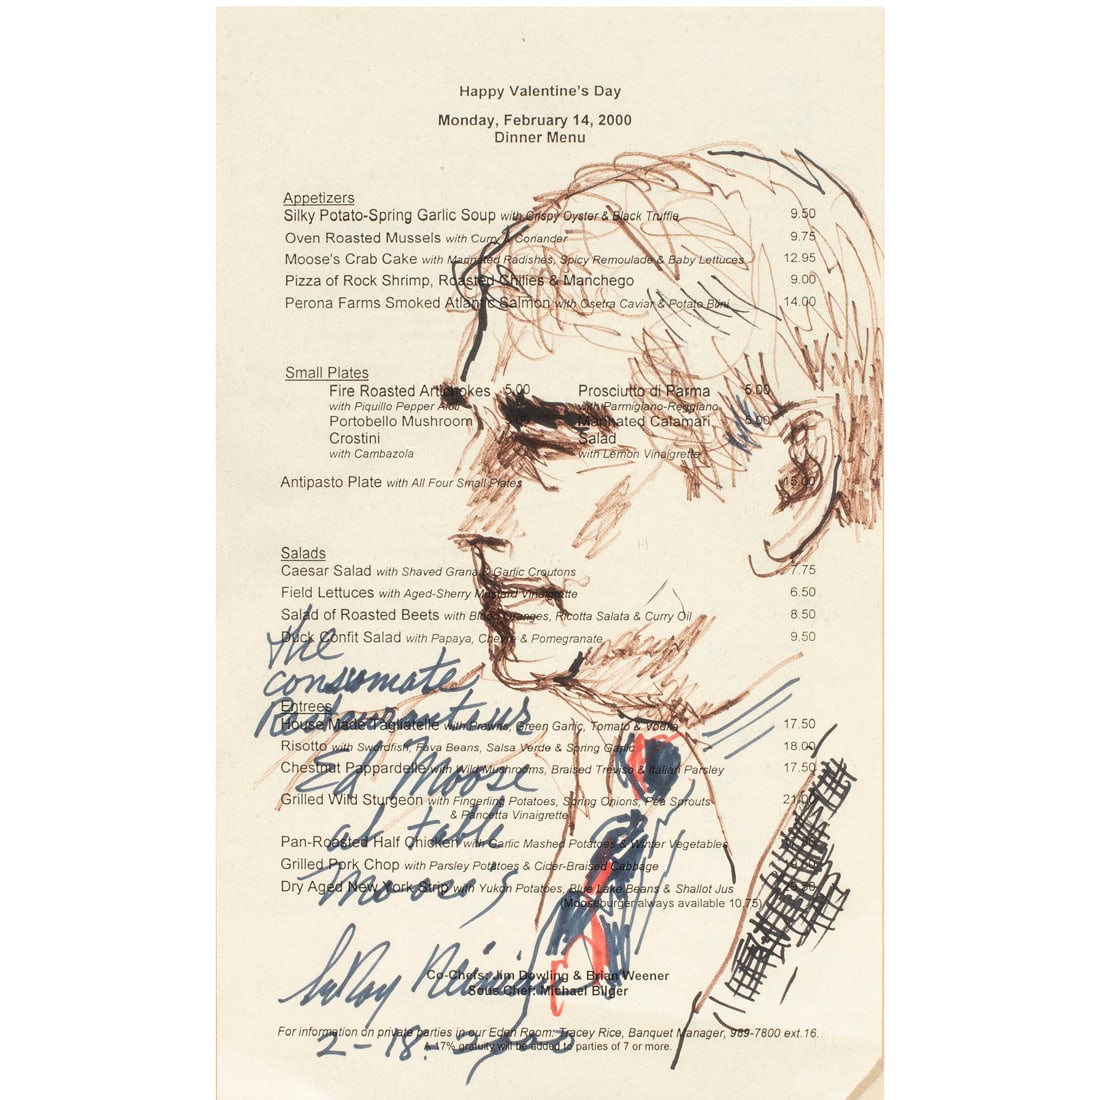 Happy Valentine's Day
Monday, February 14, 2000
Dinner Menu
Appetizers
Silky Potato-Spring Garlic Soup with Crispy Oyster & Black Truffle 9.50
Oven Roasted Mussels with Curry & Coriander 9.75
Moose's Crab Cake with Marinated Radishes, Spicy Remoulade & Baby Lettuces 12.95
Pizza of Rock Shrimp, Roasted Chilies & Manchego 9.00
Perona Farms Smoked Atlantic Salmon with Osetra Caviar & Potato Blini 14.00
Small Plates
Fire Roasted Artichokes 5.00 Prosciutto di Parma 5.00
with Piquillo Pepper Aioli with Parmigiano-Reggiano
Portobello Mushroom 5.00 Marinated Calamari 5.00
Crostini Salad
with Cambazola with Lemon Vinaigrette
Antipasto Plate with All Four Small Plates 15.00
Salads
Caesar Salad with Shaved Grana & Garlic Croutons 7.75
Field Lettuces with Aged-Sherry Mustard Vinaigrette 6.50
Salad of Roasted Beets with Blood Oranges, Ricotta Salata & Curry Oil 8.50
Duck Confit Salad with Papaya, Cherry & Pomegranate 9.50
The
consomate
Restauranteur
Ed Moose
at table
Moose's
LeRoy Neiman
2-18-2000
Entrees
House Made Tagliatelle with Prawns, Green Garlic, Tomato & Vodka 17.50
Risotto with Swordfish, Fava Beans, Salsa Verde & Spring Garlic 18.00
Chestnut Pappardelle with Wild Mushrooms, Braised Treviso & Italian Parsley 17.50
Grilled Wild Sturgeon with Fingerling Potatoes, Spring Onions, Pea Sprouts 21.00
& Pancetta Vinaigrette
Pan-Roasted Half Chicken with Garlic Mashed Potatoes & Winter Vegetables
Grilled Pork Chop with Parsley Potatoes & Cider-Braised Cabbage
Dry Aged New York Strip with Yukon Potatoes, Blue Lake Beans & Shallot Jus
(Mooseburger always available 10.75)
Co-Chefs: Jim Dowling & Brian Weener
Sous Chef: Michael Bilger
For information on private parties in our Eden Room: Tracey Rice, Banquet Manager, 989-7800 ext.16.
A 17% gratuity will be added to parties of 7 or more.